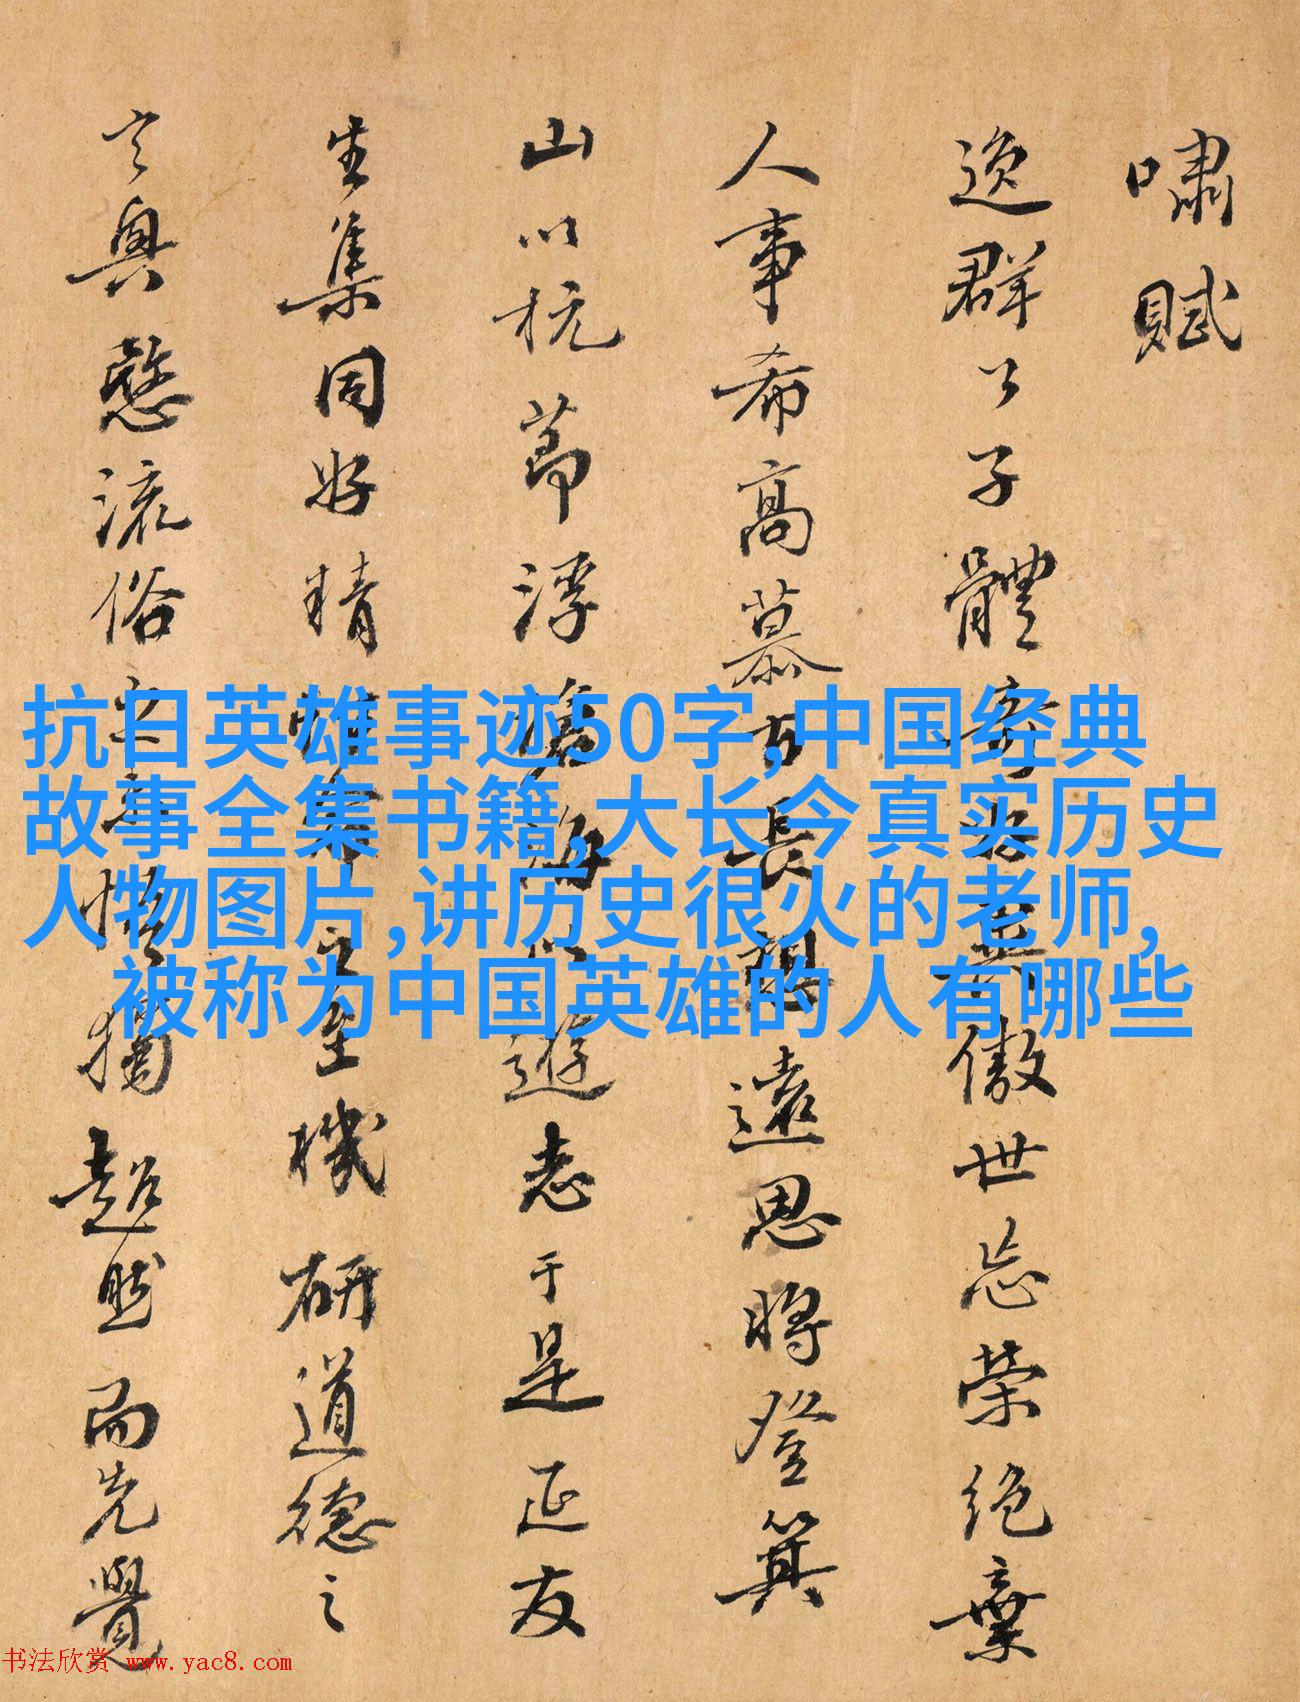 嘯賦
逸群公子體奇好異傲世忘榮絕棄
人事希高慕古長想遠思將登箕
山以抗節浮滄海以遊志于是延友
生集同好精性命之至機研道德之
玄奧愍流俗之未悟獨超然而先覺
抗日英雄事迹50字,中国经典
故事全集书籍,大长今真实历史
人物图片,讲历史很火的老师,
被称为中国英雄的人有哪些
书法欣赏 www.yac8.com